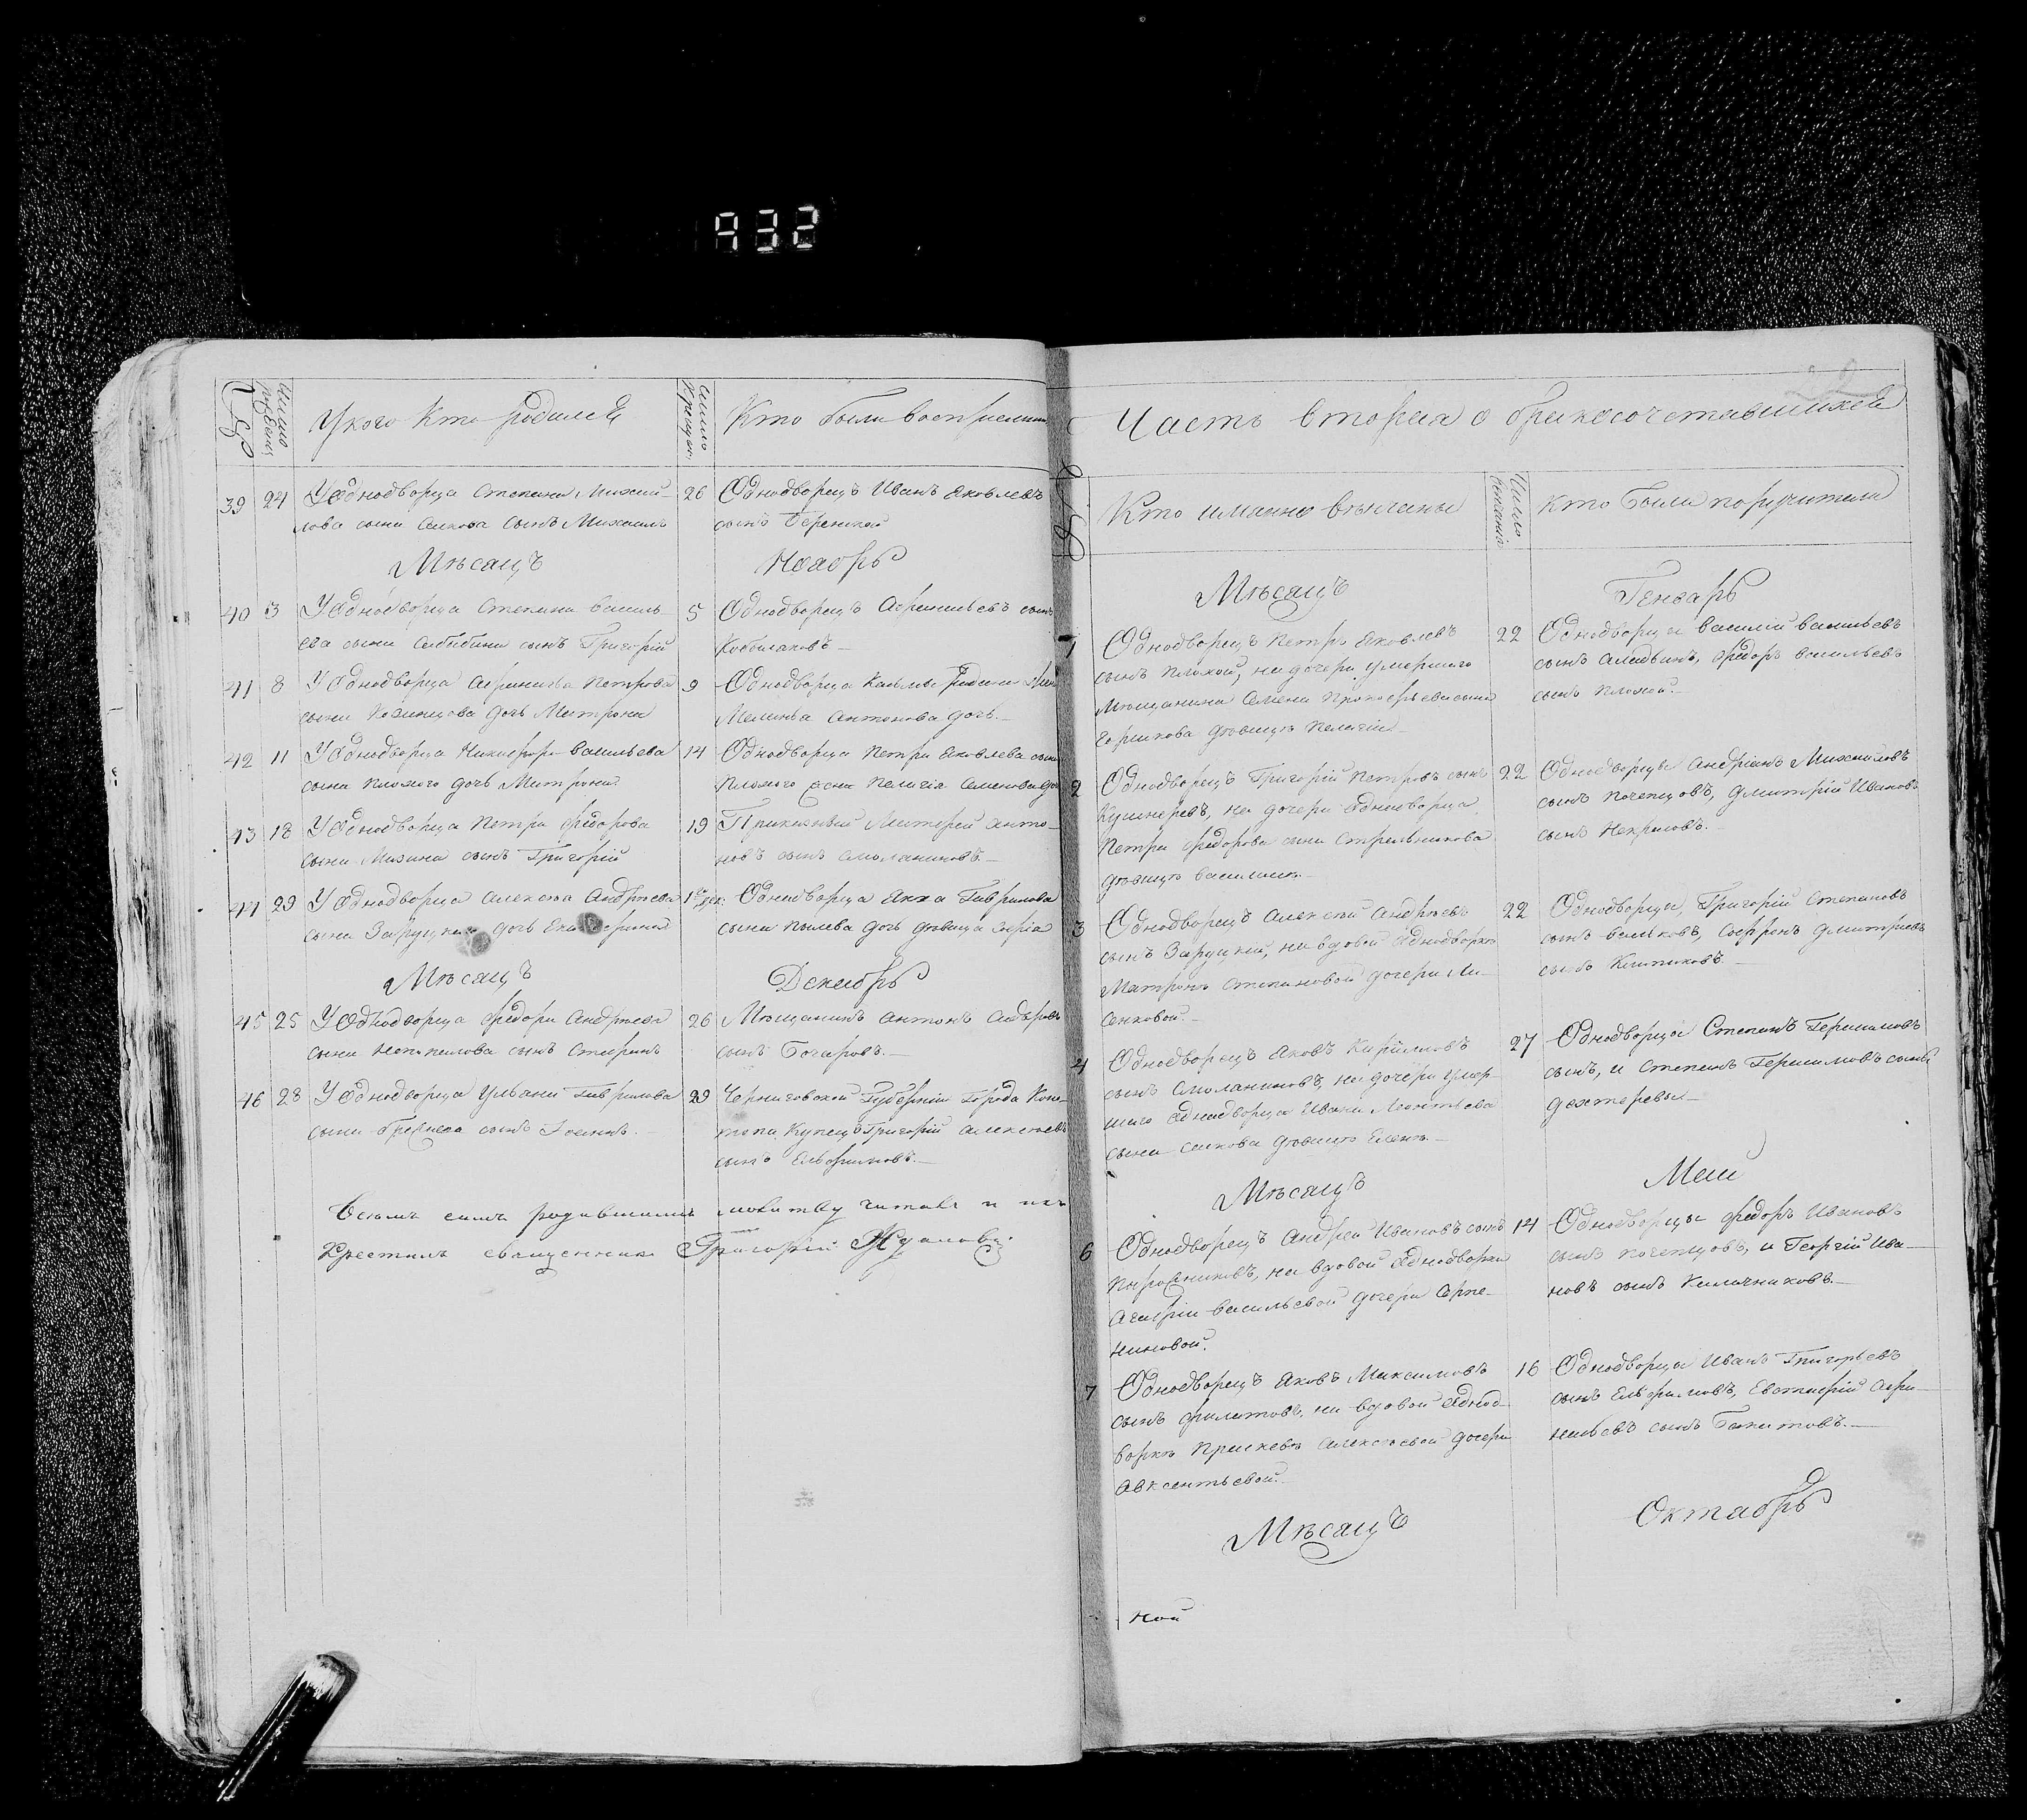 932
Число рожденія
У кого кто родился
Число крещен:
Кто были воспріемники
39 24 У Однодворца Степана Михай-
лова сына Сенкова сынъ Михаилъ
26 Однодворецъ Иванъ Яковлевъ
сынъ
Мѣсяцъ Ноябрь
40 3 У Однодворца Степана Василь
ева сына сынъ Григорій
5 Однодворецъ Афанасьевъ сынъ
Кобылаковъ
41 8 У Однодворца Афанасья Петрова
сына Казинцова дочь Матрона
9 Однодворца Касьмы
Меланья Антонова дочь
42 11 У Однодворца Никифора Васильева
сына Плохого дочь Матрона
14 Однодворца Петра Яковлева сына
Плохого жена Пелагія Семенова до
43 18 У Однодворца Петра Федорова
сына Мизина сынъ Григорій
19 Приказный Анто-
новъ сынъ Смоляниковъ
44 29 У Однодворца Алексѣя Андрѣева
сына Заруцкаго дочь Екатерина
1 дек: Однодворца Якка Гаврилова
сына Пылева дочь дѣвица Софія
Мѣсяцъ Декабрь
45 25 У Однодворца Федора Андрѣева
сына Непопалова сынъ
26 Мѣщанинъ Антонъ
сынъ Бочаровъ
46 28 У Однодворца Ульяна Гаврилова
сына сынъ
29 Черниговской Губерніи Города Коно-
топа Купецъ Григорій Алексѣевъ
сынъ Ельфимовъ
Всѣмъ симъ родившимся молитву читалъ и ихъ
Крестилъ священникъ Григорій
22
Часть вторая о бракосочетавшихся
Кто имянно вѣнчаны
Число вѣнчанія
Кто были поручители
Мѣсяцъ Генварь
1 Однодворецъ Петръ Яковлевъ
сынъ Плохой, на дочери умершаго
Мѣщанина Семена Прокофьева сына
Горшкова дѣвицѣ Пелагіи
22 Однодворцы Василій Васильевъ
сынъ Федоръ Васильевъ
сынъ Плохой
2 Однодворецъ Григорій Петровъ сынъ
Кушнеревъ, на дочери Однодворца
Петра Федорова сына Стрельникова
дѣвицѣ
22 Однодворцы Андріанъ Михайловъ
сынъ Почепцовъ, Дмитрій Ивановъ
сынъ Некрасовъ
3 Однодворецъ Алексѣй Андрѣевъ
сынъ Заруцкій, на вдовой Однодворкѣ
Матронѣ Степановой дочери Ли-
сенковой
22 Однодворцы, Григорій Степановъ
сынъ Волковъ, Софронъ Дмитріевъ
сынъ
4 Однодворецъ Яковъ Кириловъ
сынъ Смоляниковъ, на дочери умер-
шаго Однодворца Ивана Леонтьева
сына Сенкова дѣвицѣ Еленѣ
27 Однодворцы Степанъ Герасимовъ
сынъ, и Степанъ Герасимовъ сынъ
Дехтеревы
Мѣсяцъ Маи
6 Однодворецъ Андрей Ивановъ сынъ
Пырожниковъ, на вдовой Однодворки
Агафіи Васильевой дочери Серпе-
ниновой
14 Однодворцы Федоръ Ивановъ
сынъ Почепцовъ, и Георгій Ива-
новъ сынъ Калачниковъ
7 Однодворецъ Яковъ Максимовъ
сынъ Филатовъ, на вдовой Однод-
воркѣ Прасковьѣ Алексѣевой дочери
Авксентьевой
16 Однодворцы Иванъ Григорьевъ
сынъ Ельфимовъ, Евстафій Афа-
насьевъ сынъ
Мѣсяцъ Октябрь
ной